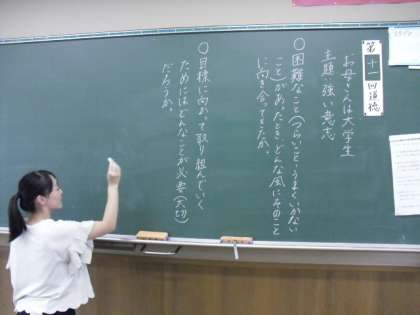 第十一回道徳
お母さんは大学生
主題:強い意志
○困難なこと(つらいこと・うまくいかない
こと)があったとき、どんな風にそのこと
に向き合ってきたか。
○目標に向かって取り組んでいく
ためにはどんなことが必要(大切)
だろうか。